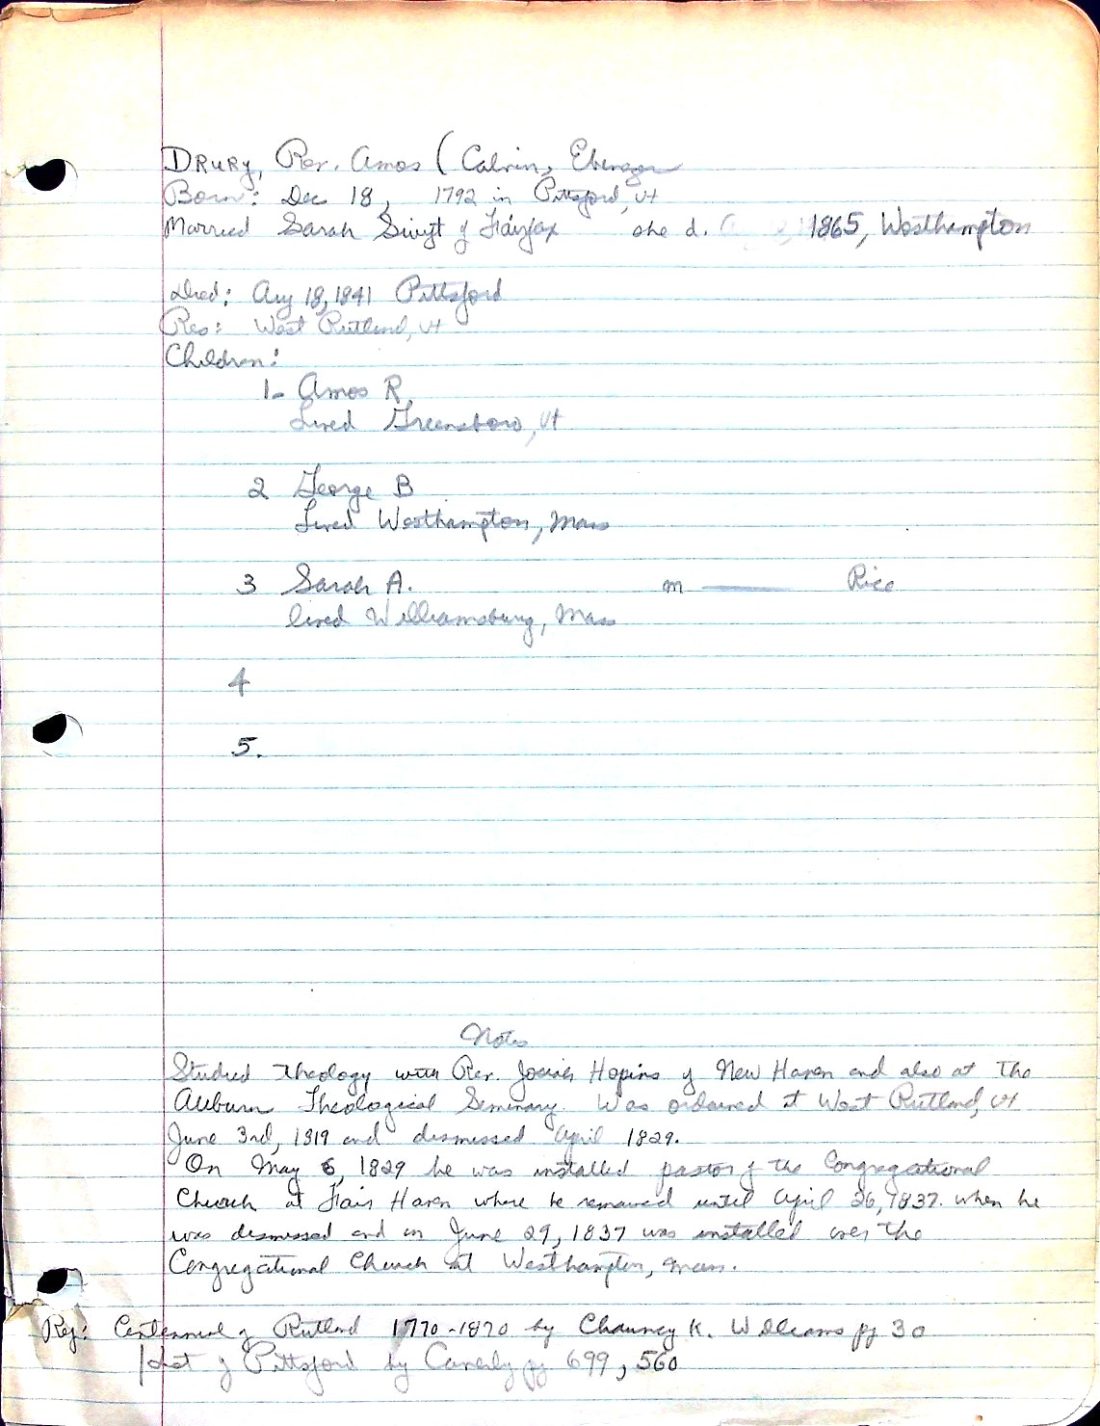 DRURY, Rev. Amos (Calvin, Ebenezer
Born: Dec 18, 1792 in Pittsford, Vt
Married Sarah Swift of Fairfax she d. 1865, Westhampton
Died: Aug 18, 1841 Pittsford
Res: West Rutland, Vt
Children:
1- Amos R.
Lived Greensboro, Vt
2 George B
Lived Westhampton, Mass
3 Sarah A. m —— Rice
lived Williamsburg, Mass
4
5.
Notes
Studied Theology with Rev. Josiah Hopins of New Haven and also at The
Auburn Theological Seminary. Was ordained at West Rutland, Vt
June 3rd, 1819 and dismissed April 1829.
On May 6, 1829 he was installed pastor of the Congregational
Church at Fair Haven where he remained until April 26, 1837. when he
was dismissed and on June 29, 1837 was installed over the
Congregational Church at Westhampton, Mass.
Ref: Centennial of Rutland 1770-1870 by Chauncy K. Williams pg 30
Hist of Pittsford by Caverly pg 699, 560